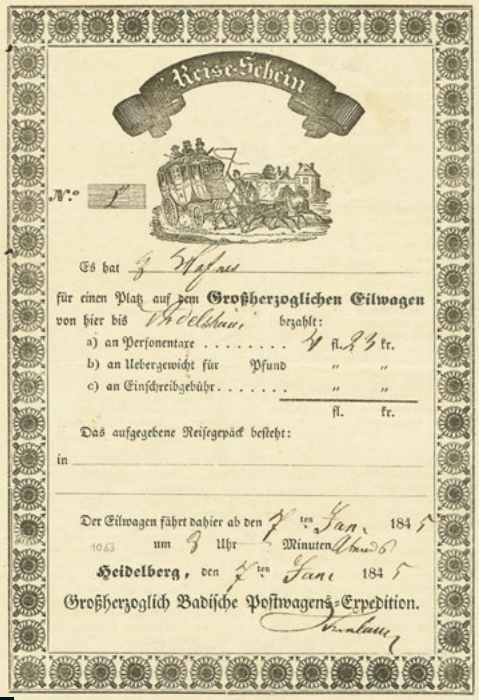 Reise-Schein
N.º 1
Es hat
für einen Platz auf dem Großherzoglichen Eilwagen
von hier bis bezahlt:
a) an Personentaxe . . . . . . . . fl. 24 kr.
b) an Uebergewicht für Pfund " "
c) an Einschreibgebühr . . . . . . . " "
fl. kr.
Das aufgegebene Reisegepäck besteht:
in
Der Eilwagen fährt dahier ab den 7 ten Jan. 1845
1063 um 8 Uhr — Minuten Abends
Heidelberg, den 7 ten Jan. 1845
Großherzoglich Badische Postwagens-Expedition.